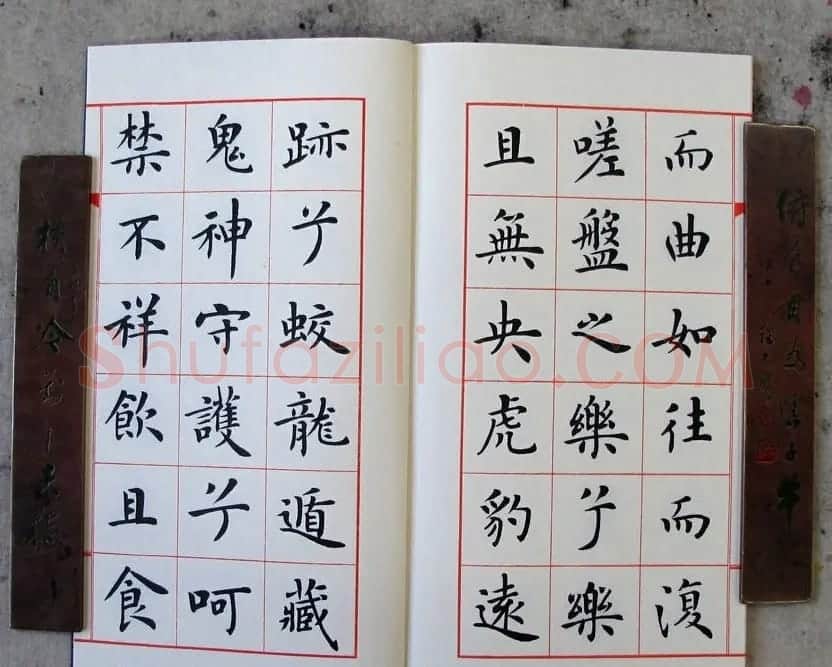 而曲如往而復
嗟盤之樂兮樂
且無央虎豹遠
跡兮蛟龍遁藏
鬼神守護兮呵
禁不祥飲且食
Shufaziliao.COM